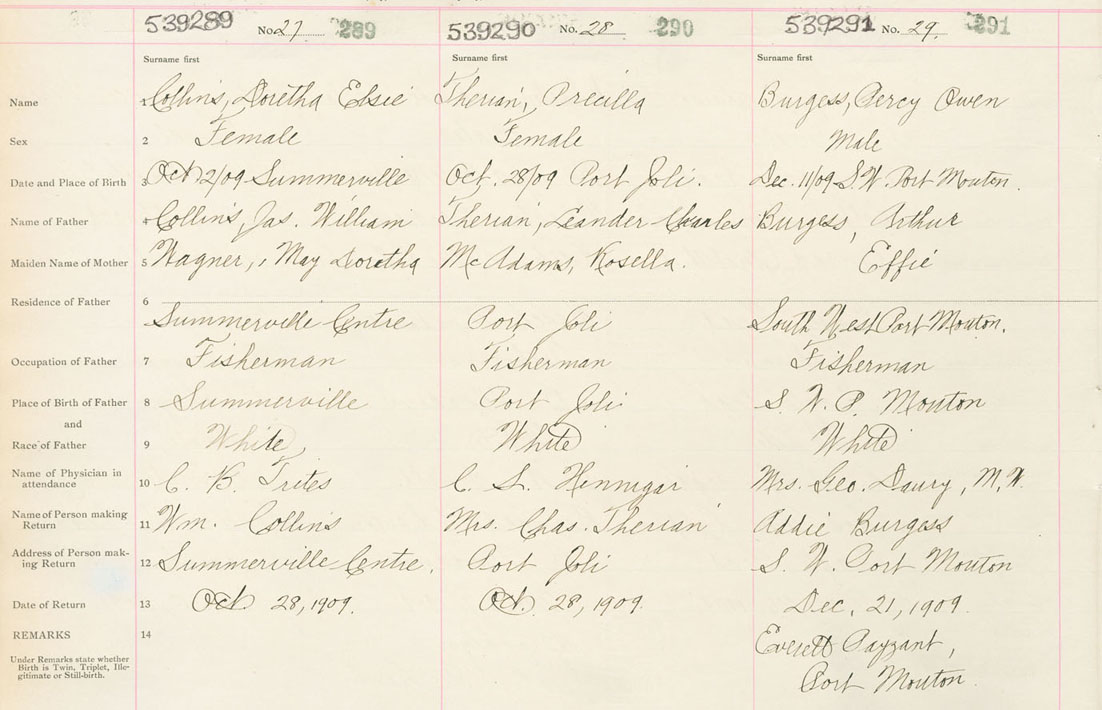 539289 No. 27 289 539290 No. 28 290 539291 No. 29. 291
Surname first Surname first Surname first
Name 1 Collins, Doretha Elsie Therian, Precilla Burgess, Percy Owen
Sex 2 Female Female Male
Date and Place of Birth 3 Oct 2/09 Summerville Oct. 28/09 Port Joli. Dec. 11/09 S.W. Port Mouton.
Name of Father 4 Collins, Jas. William Therian, Leander Charles Burgess, Arthur
Maiden Name of Mother 5 Wagner, May Doretha McAdams, Rosella. Effie
Residence of Father 6 Summerville Centre Port Joli South West Port Mouton.
Occupation of Father 7 Fisherman Fisherman Fisherman
Place of Birth of Father 8 Summerville Port Joli S. W. P. Mouton
and
Race of Father 9 White White White
Name of Physician in
attendance 10 C. B. Trites C. S. Hennigar Mrs. Geo. Daury, M.W.
Name of Person making
Return 11 Wm. Collins Mrs. Chas. Therian Addie Burgess
Address of Person mak-
ing Return 12 Summerville Centre. Port Joli S. W. Port Mouton
Date of Return 13 Oct 28, 1909. Oct. 28, 1909. Dec. 21, 1909.
REMARKS 14 Everett Payzant,
Under Remarks state whether
Birth is Twin, Triplet, Ille-
gitimate or Still-birth. Port Mouton.